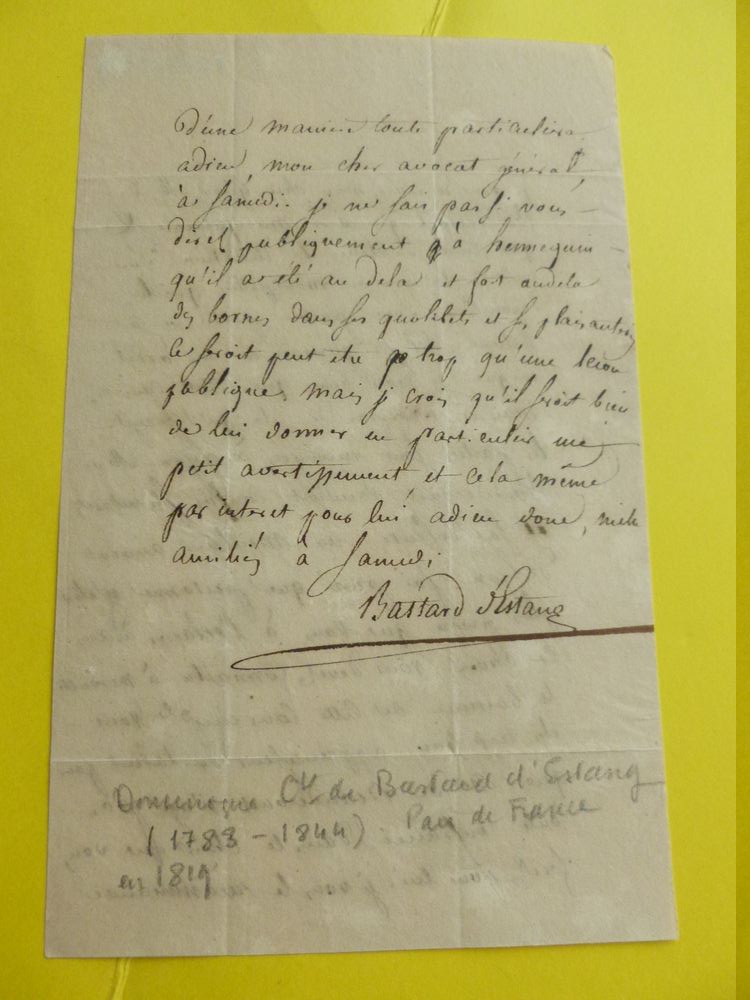 d'une maniere toute particuliere
adieu, mon cher avocat général,
à samedi. je ne sais pas si vous
direz publiquement à hennequin
qu'il a été au dela et fort audela
des bornes dans ses quolibets et ses plaisanteries
ce seroit peut etre trop qu'une lecon
publique, mais je crois qu'il seroit bien
de lui donner en particulier un
petit avertissement, et cela même
par interet pour lui adieu donc, mille
amitiés à samedi
Bastard d'Estang
Dominique Cte de Bastard d'Estang
(1783 - 1844) Pair de France
en 1819